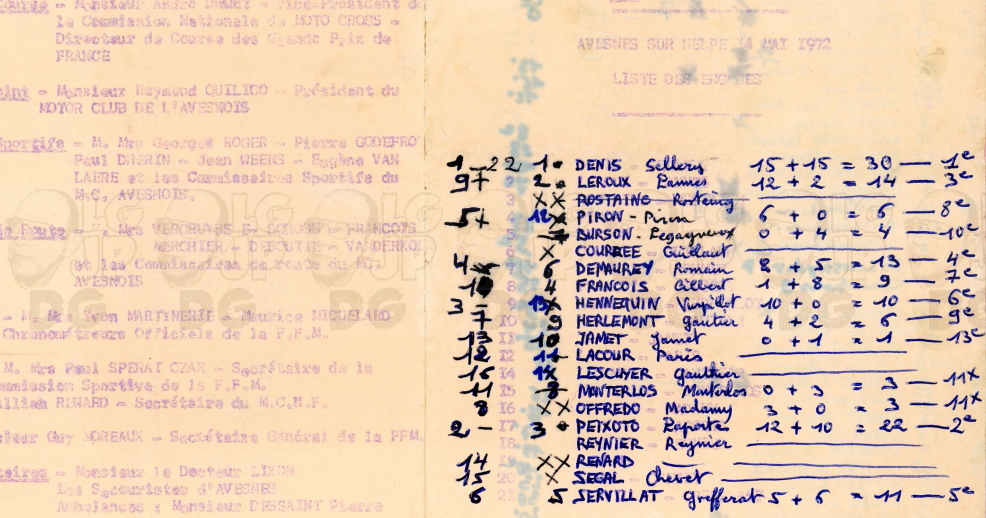 Course - Monsieur André DRMEY - Vice-Président d
la Commission Nationale de MOTO CROSS -
Directeur de Course des Grands Prix de
FRANCE
Monsieur Raymond QUILICO - Président du
MOTOR CLUB DE L'AVESNOIS
Sportifs - M. Mrs Georges ROGER - Pierre GODEFRO
Paul DHERIN - Jean WEENS - Eugène VAN
LAERE et les Commissaires Sportifs du
M.C. AVESNOIS.
Route - Mrs FRANCOIS
MERCHIER - DEBOUTTE - VANDERKOL
et les Commissaires de route du MC.
AVESNOIS
- M. Mrs Yvon MARTYNERIE - Maurice MIQUELARD
Chronométreurs Officiels de la F.F.M.
M. Mrs Paul SPERAT CZAR - Secrétaire de la
mmission Sportive de la F.F.M.
illiam RUNARD - Secrétaire du M.C.N.F.
cteur Guy MOREAUX - Secrétaire Général de la FFM.
taires - Monsieur le Docteur LIXON
Les Secouristes d'AVESNES
Ambulances : Monsieur DESSAINT Pierre
AVESNES SUR HELPE 14 MAI 1972
LISTE DES
1 - 22 1 DENIS Sellery 15 + 15 = 30 — 1e
97 2 LEROUX - Pannes 12 + 2 = 14 — 3e
3 XX ROSTAING
5 12 PIRON - Piron 6 + 0 = 6 — 8e
5 BURSON - 0 + 4 = 4 — 10e
6 X COURBEE - Guillaut
4 6 DEMAUREY Romain 8 + 5 = 13 — 4e
8 4 FRANCOIS Gilbert 1 + 8 = 9 — 7e
3 - 9 HENNEQUIN 10 + 0 = 10 — 6e
7 10 9 HERLEMONT Gautier 4 + 2 = 6 — 9e
13 11 10 JAMET - Jamet 0 + 1 = 1 — 13e
12 12 11 LACOUR - Paris
16 14 LESCUYER Gaulthier
11 15 8 MONTERLOS Monterlos 0 + 3 = 3 — 11x
8 16 XX OFFREDO - Madamy 3 + 0 = 3 — 11x
2 - 17 3 PEIXOTO Laporte 12 + 10 = 22 — 2e
18 REYNIER - Reynier
14 19 XX RENARD
15 20 X SEGAL Chevet
6 21 5 SERVILLAT Grefferat 5 + 6 = 11 — 5e